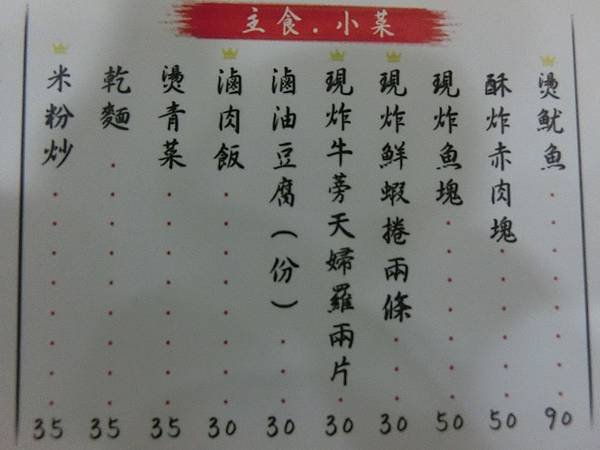 主食．小菜
燙魷魚 90
酥炸赤肉塊 50
現炸魚塊 50
現炸鮮蝦捲兩條 30
現炸牛蒡天婦羅兩片 30
滷油豆腐（份） 30
滷肉飯 30
燙青菜 35
乾麵 35
米粉炒 35